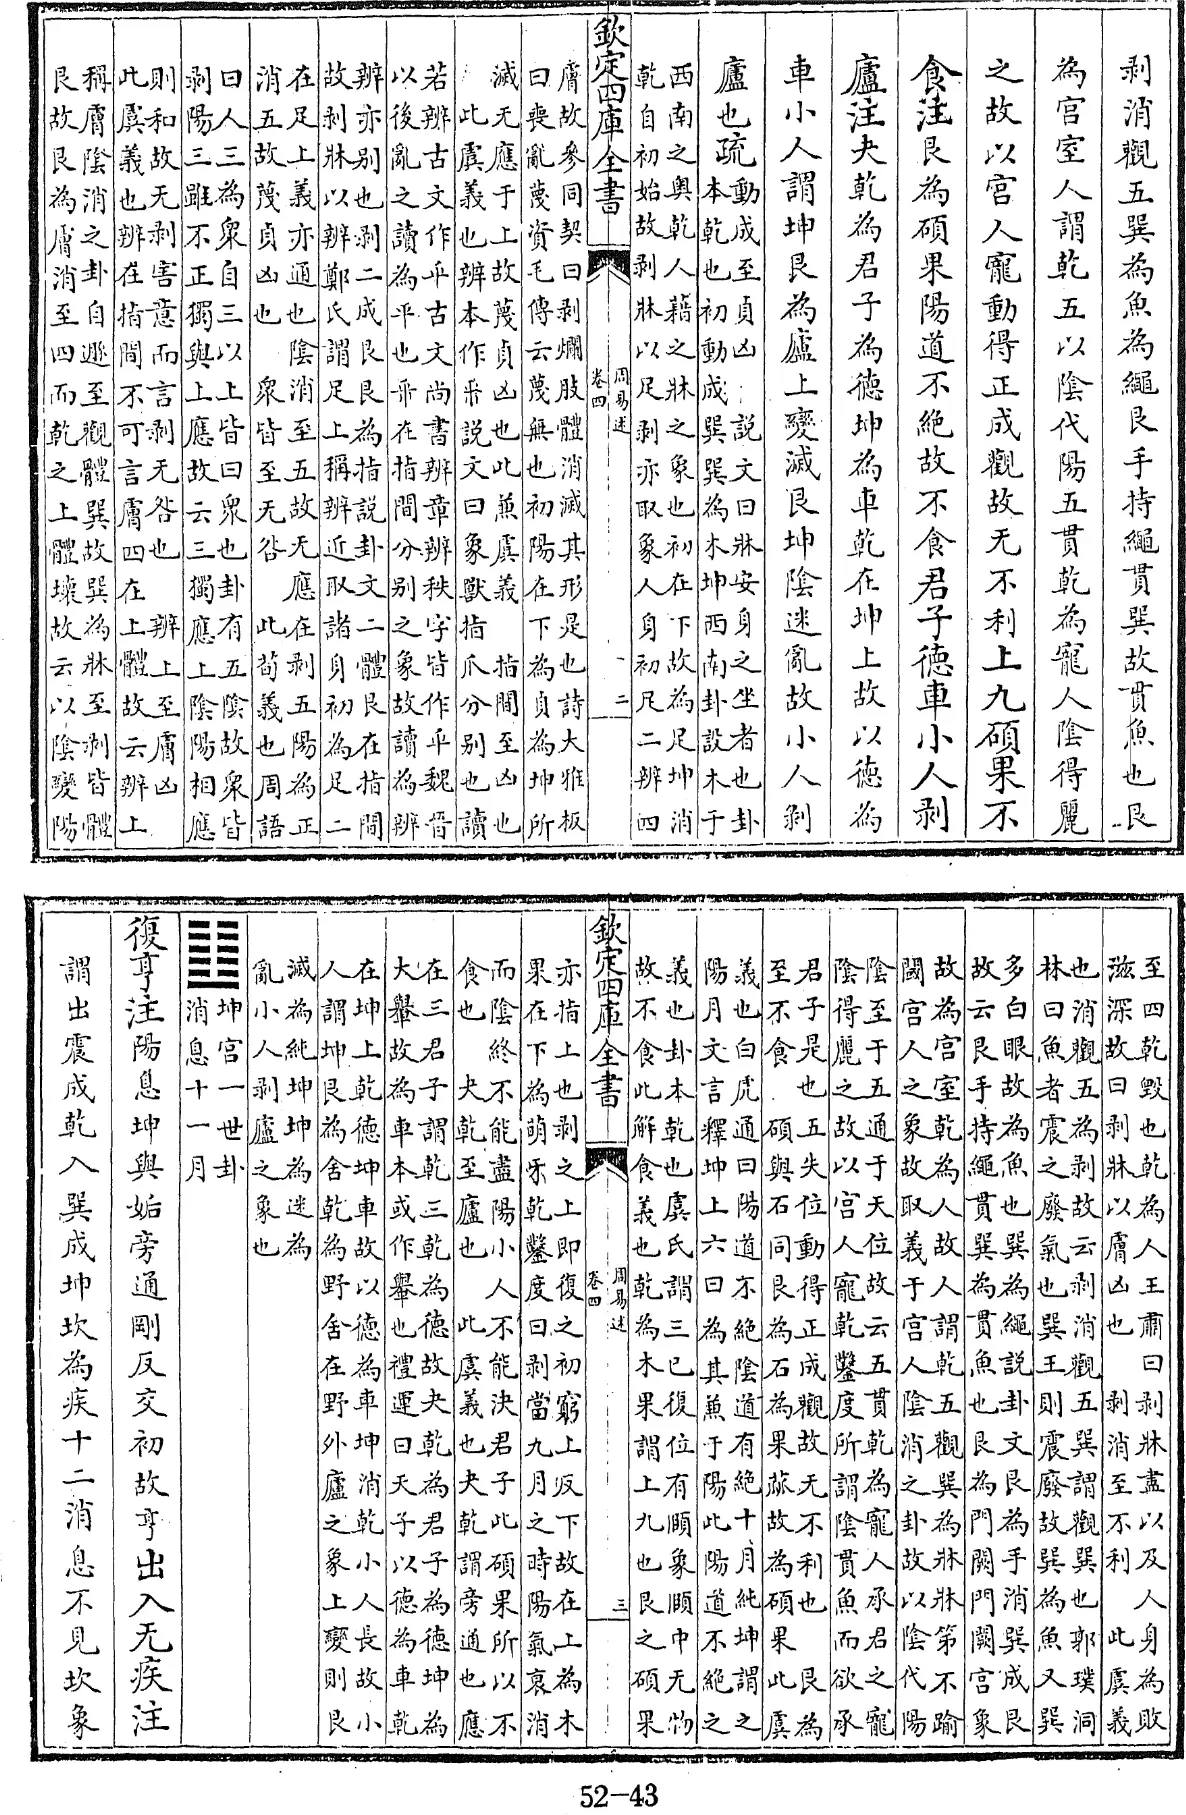 剥消觀五巽為魚為繩艮手持繩貫巽故貫魚也艮
為宫室人謂乾五以陰代陽五貫乾為寵人陰得麗
之故以宫人寵動得正成觀故无不利上九碩果不
食注艮為碩果陽道不絶故不食君子德車小人剥
廬注夬乾為君子為德坤為車乾在坤上故以德為
車小人謂坤艮為廬上變滅艮坤陰迷亂故小人剥
廬也疏
動成至貞凶 說文曰牀安身之坐者也卦
本乾也初動成巽巽為木坤西南卦設木于
西南之奥乾人藉之牀之象也初在下故為足坤消
乾自初始故剥牀以足剥亦取象人身初足二辨四
欽定四庫全書
周易述
卷四
二
膚故參同契曰剥爛肢體消滅其形是也詩大雅板
曰喪亂蔑資毛傳云蔑無也初陽在下為貞為坤所
滅无應于上故蔑貞凶也此兼虞義 指間至凶也
此虞義也辨本作釆說文曰象獸指爪分别也讀
若辨古文作𠂔古文尚書辨章辨秩字皆作𠂔魏晉
以後亂之讀為平也釆在指間分别之象故讀為辨
辨亦别也剥二成艮艮為指說卦文二體艮在指間
故剥牀以辨鄭氏謂足上稱辨近取諸身初為足二
在足上義亦通也 陰消至五故无應在剥五陽為正
消五故蔑貞凶也 衆皆至无咎 此荀義也周語
曰人三為衆自三以上皆曰衆也卦有五陰故衆皆
剥陽三雖不正獨與上應故云三獨應上陰陽相應
則和故无剥害意而言剥无咎也 辨上至膚凶
此虞義也辨在指間不可言膚四在上體故云辨上
稱膚陰消之卦自遯至觀體巽故巽為牀至剥皆體
艮故艮為膚消至四而乾之上體壞故云以陰變陽
至四乾毁也乾為人王肅曰剥牀盡以及人身為敗
滋深故曰剥牀以膚凶也 剥消至不利 此虞義
也消觀五為剥故云剥消觀五巽謂觀巽也郭璞洞
林曰魚者震之廢氣也巽王則震廢故巽為魚又巽
多白眼故為魚也巽為繩說卦文艮為手消巽成艮
故云艮手持繩貫巽為貫魚也艮為門闕門闕宫象
故為宫室乾為人故人謂乾五觀巽為牀牀第不踰
閾宫人之象故取義于宫人陰消之卦故以陰代陽
陰至于五通于天位故云五貫乾為寵人承君之寵
陰得麗之故以宫人寵乾鑿度所謂陰貫魚而欲承
君子是也五失位動得正成觀故无不利也 艮為
至不食 碩與石同艮為石為果蓏故為碩果 此虞
義也白虎通曰陽道不絶陰道有絶十月純坤謂之
陽月文言釋坤上六曰為其兼于陽此陽道不絶之
義也卦本乾也虞氏謂三已復位有頤象頤中无物
故不食此解食義也乾為木果謂上九也艮之碩果
欽定四庫全書
周易述
卷四
三
亦指上也剥之上即復之初窮上反下故在上為木
果在下為萌牙乾鑿度曰剥當九月之時陽氣衰消
而陰終不能盡陽小人不能決君子此碩果所以不
食也 夬乾至廬也 此虞義也夬乾謂旁通也應
在三君子謂乾三乾為德故夬乾為君子為德坤為
大轝故為車本或作轝也禮運曰天子以德為車乾
在坤上乾德坤車故以德為車坤消乾小人長故小
人謂坤艮為舍乾為野舍在野外廬之象上變則艮
滅為純坤坤為迷為
亂小人剥廬之象也
坤宮一世卦
消息十一月
復亨注陽息坤與姤旁通剛反交初故亨出入无疾注
謂出震成乾入巽成坤坎為疾十二消息不見坎象
52-43